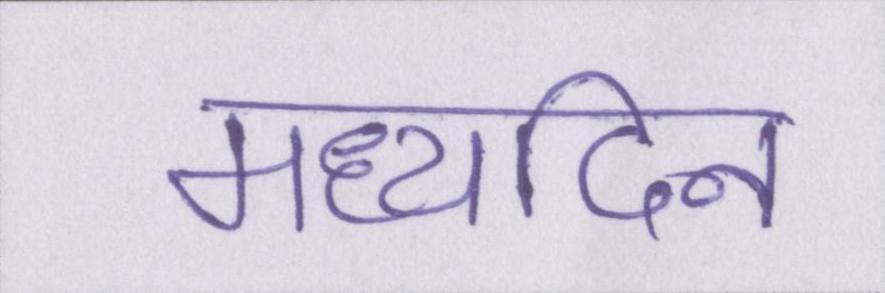 मध्यदिन